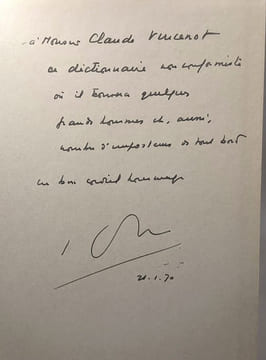 à Monsieur Claude Vincenot
ce dictionnaire non conformiste
où il trouvera quelques
grands hommes et, aussi,
nombre d'imposteurs de tout bord
un bon cordial hommage
21.1.70